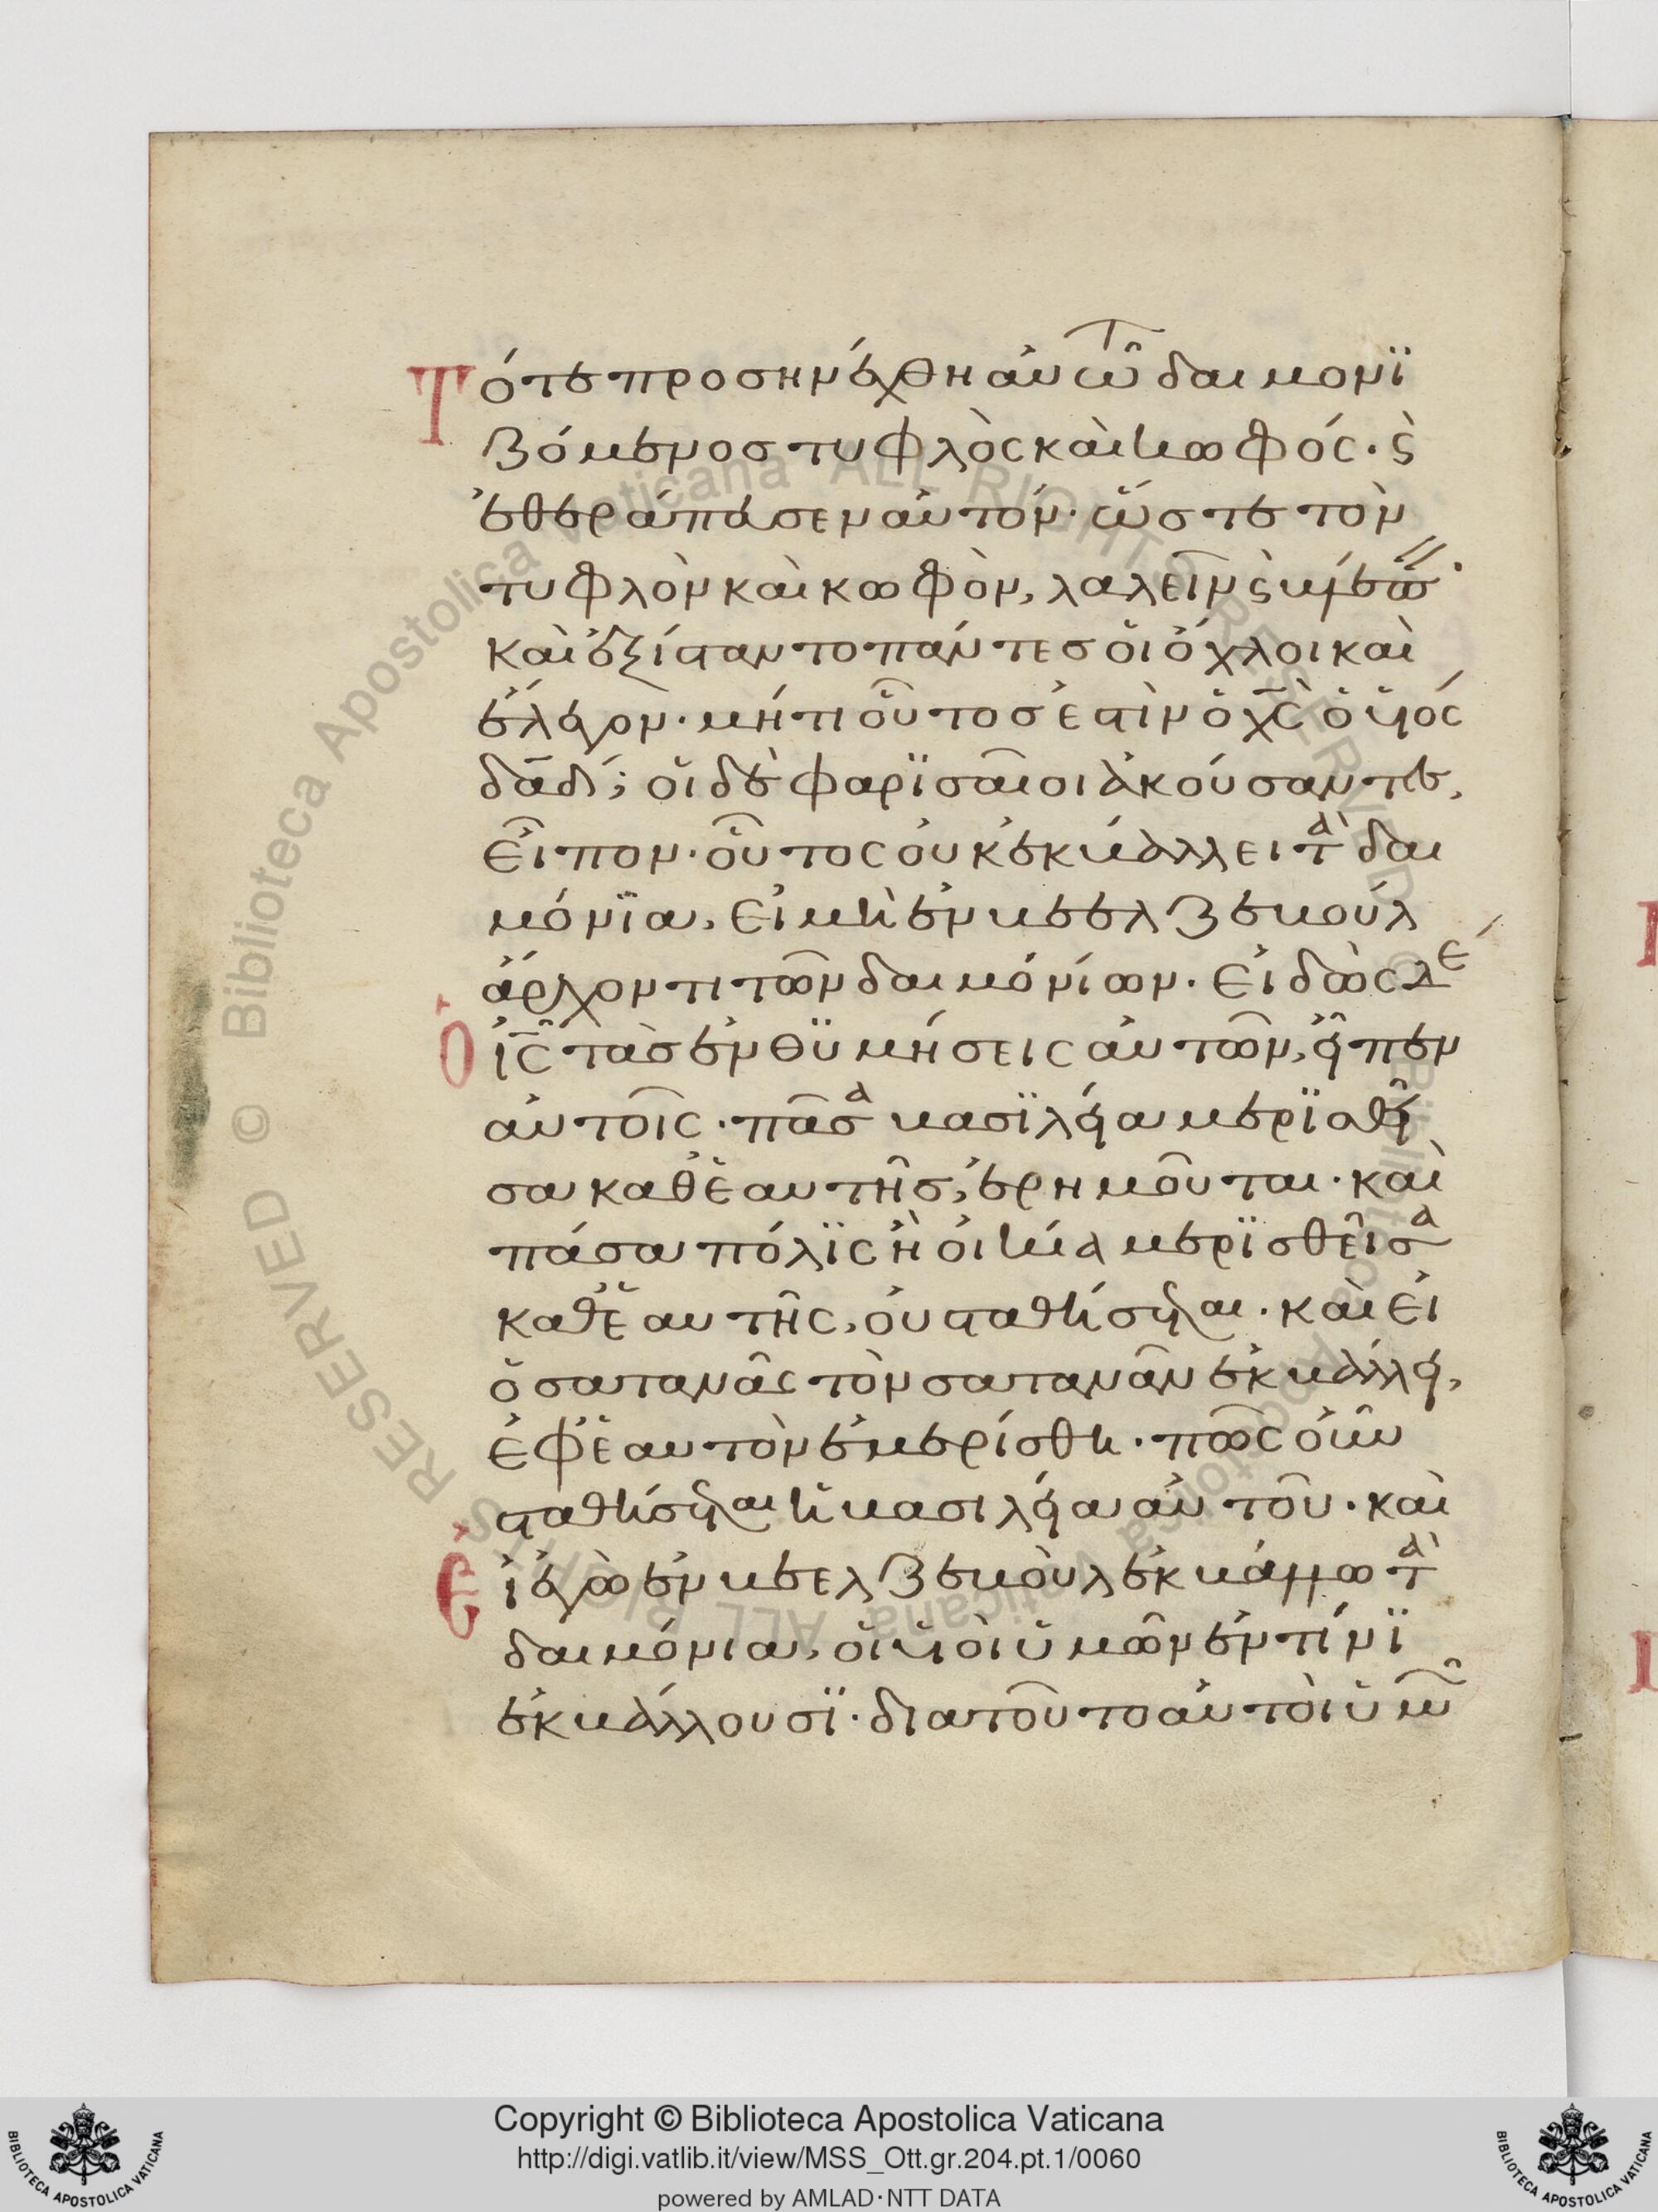 Τότε προσηνέχθη αὐτῶ δαιμονϊ
ζόμενοσ τυφλὸς καὶ κωφός· ϛ̀
ἐθεράπευσεν αὐτόν· ὥστε τὸν
τυφλὸν καὶ κωφὸν, λαλεῖν ϛ̀
καὶ ἐξίσταντο πάντεσ οἱ ὄχλοι καὶ
ἔλεγον· μήτι οὗτοσ ἐστὶν ὁ χ̅ς̅ ὁ υἱός
δα̅δ̅; οἱ δὲ φαρϊσαῖοι ἀκούσαντες,
εἶπον· οὗτος οὐκ ἐκβάλλει τὰ δαι
μόνϊα, εἰ μὴ ἐν βεελζεβούλ
ἄρχοντι τῶν δαιμόνίων. Εἰδὼς δὲ
ὁ ι̅ς̅ τὰσ ἐνθϋμήσεις αὐτῶν, εἶπεν
αὐτοῖς· πᾶσα βασϊλεία μερϊσθεῖ
σα καθ' ἑαυτῆσ, ἐρημοῦται· καὶ
πάσα πόλϊς ἢ οἰκία μερϊσθεῖσα
καθ' ἑαυτῆς, οὐ σταθήσεται· καὶ εἰ
ὁ σατανᾶς τὸν σατανᾶν ἐκβάλλει,
ἐφ' ἑαυτὸν ἐμερίσθη· πῶς οὖν
σταθήσεται ἡ βασιλεία αὐτοῦ· καὶ
εἰ ἐγὼ ἐν βεελζεβοὺλ ἐκβάλλω τὰ
δαιμόνια, οἱ υἱοὶ ὑμῶν ἐν τίνϊ
ἐκβάλλουσϊ· διατοῦτο αὐτοὶ ὑμῶ
Copyright © Biblioteca Apostolica Vaticana
http://digi.vatlib.it/view/MSS_Ott.gr.204.pt.1/0060
powered by AMLAD·NTT DATA